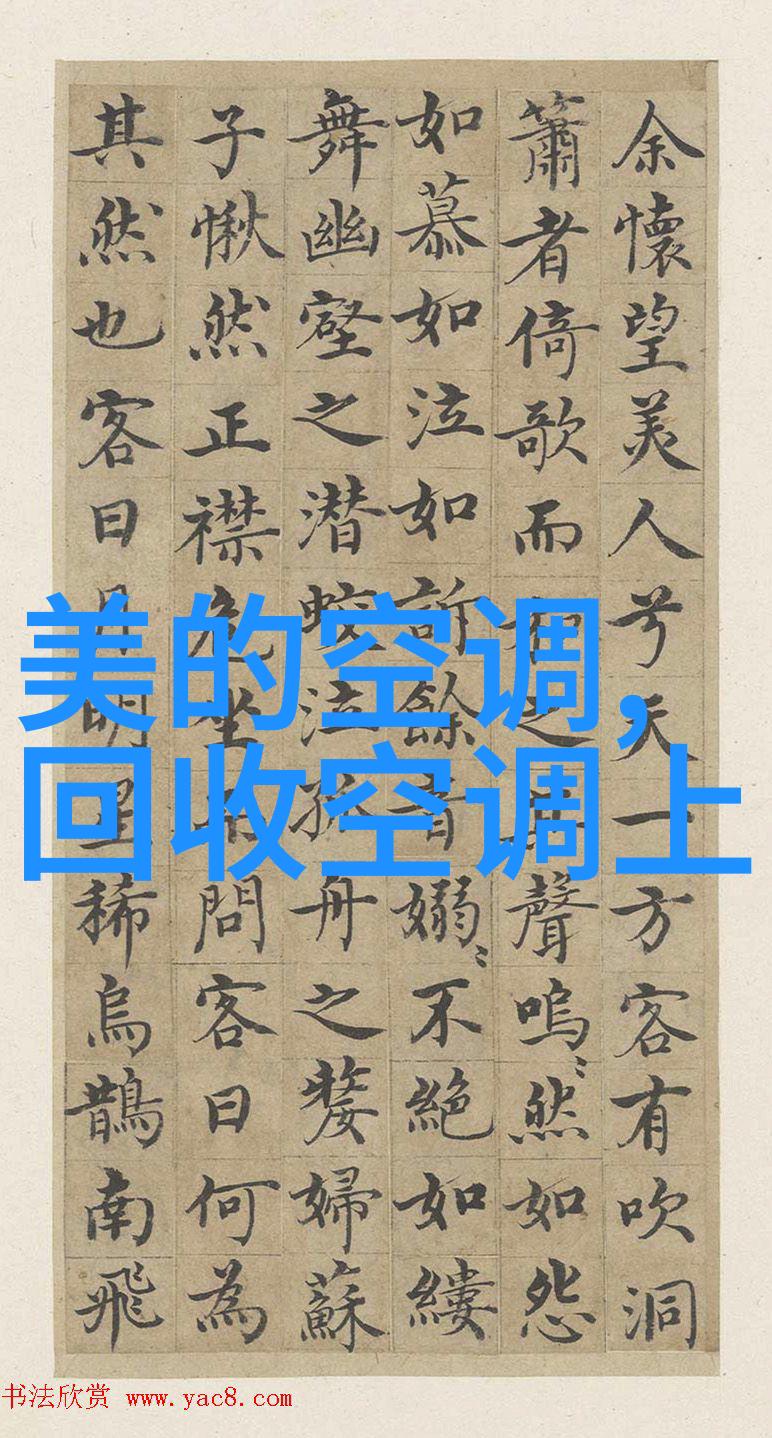 余懷望美人兮天一方客有吹洞
簫者倚歌而之聲嗚〻然如怨
如慕如泣如訴餘音嫋〻不絶如縷
舞幽壑之潜蛟泣孤舟之嫠婦蘇
子愀然正襟危坐問客曰何為
其然也客曰明星稀烏鵲南飛
美的空调,
回收空调上
书法欣赏 www.yac8.com